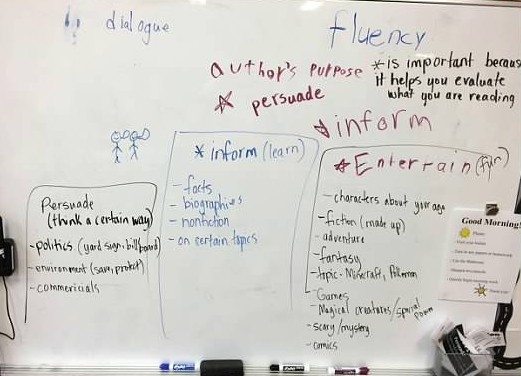 dialogue
fluency
author's purpose
* is important because
it helps you evaluate
what you are reading
persuade
inform
* inform (learn)
- facts
- biographies
- nonfiction
- on certain topics
Entertain (fun)
- characters about your age
- fiction (made up)
- adventure
- fantasy
- topic - Minecraft, Pokemon
- Games
- Magical creatures/special power
- scary/mystery
- comics
Persuade
(think a certain way)
- politics (yard sign, billboard)
- environment (save, protect)
- commericials
Good Morning!
Please
Thank you!